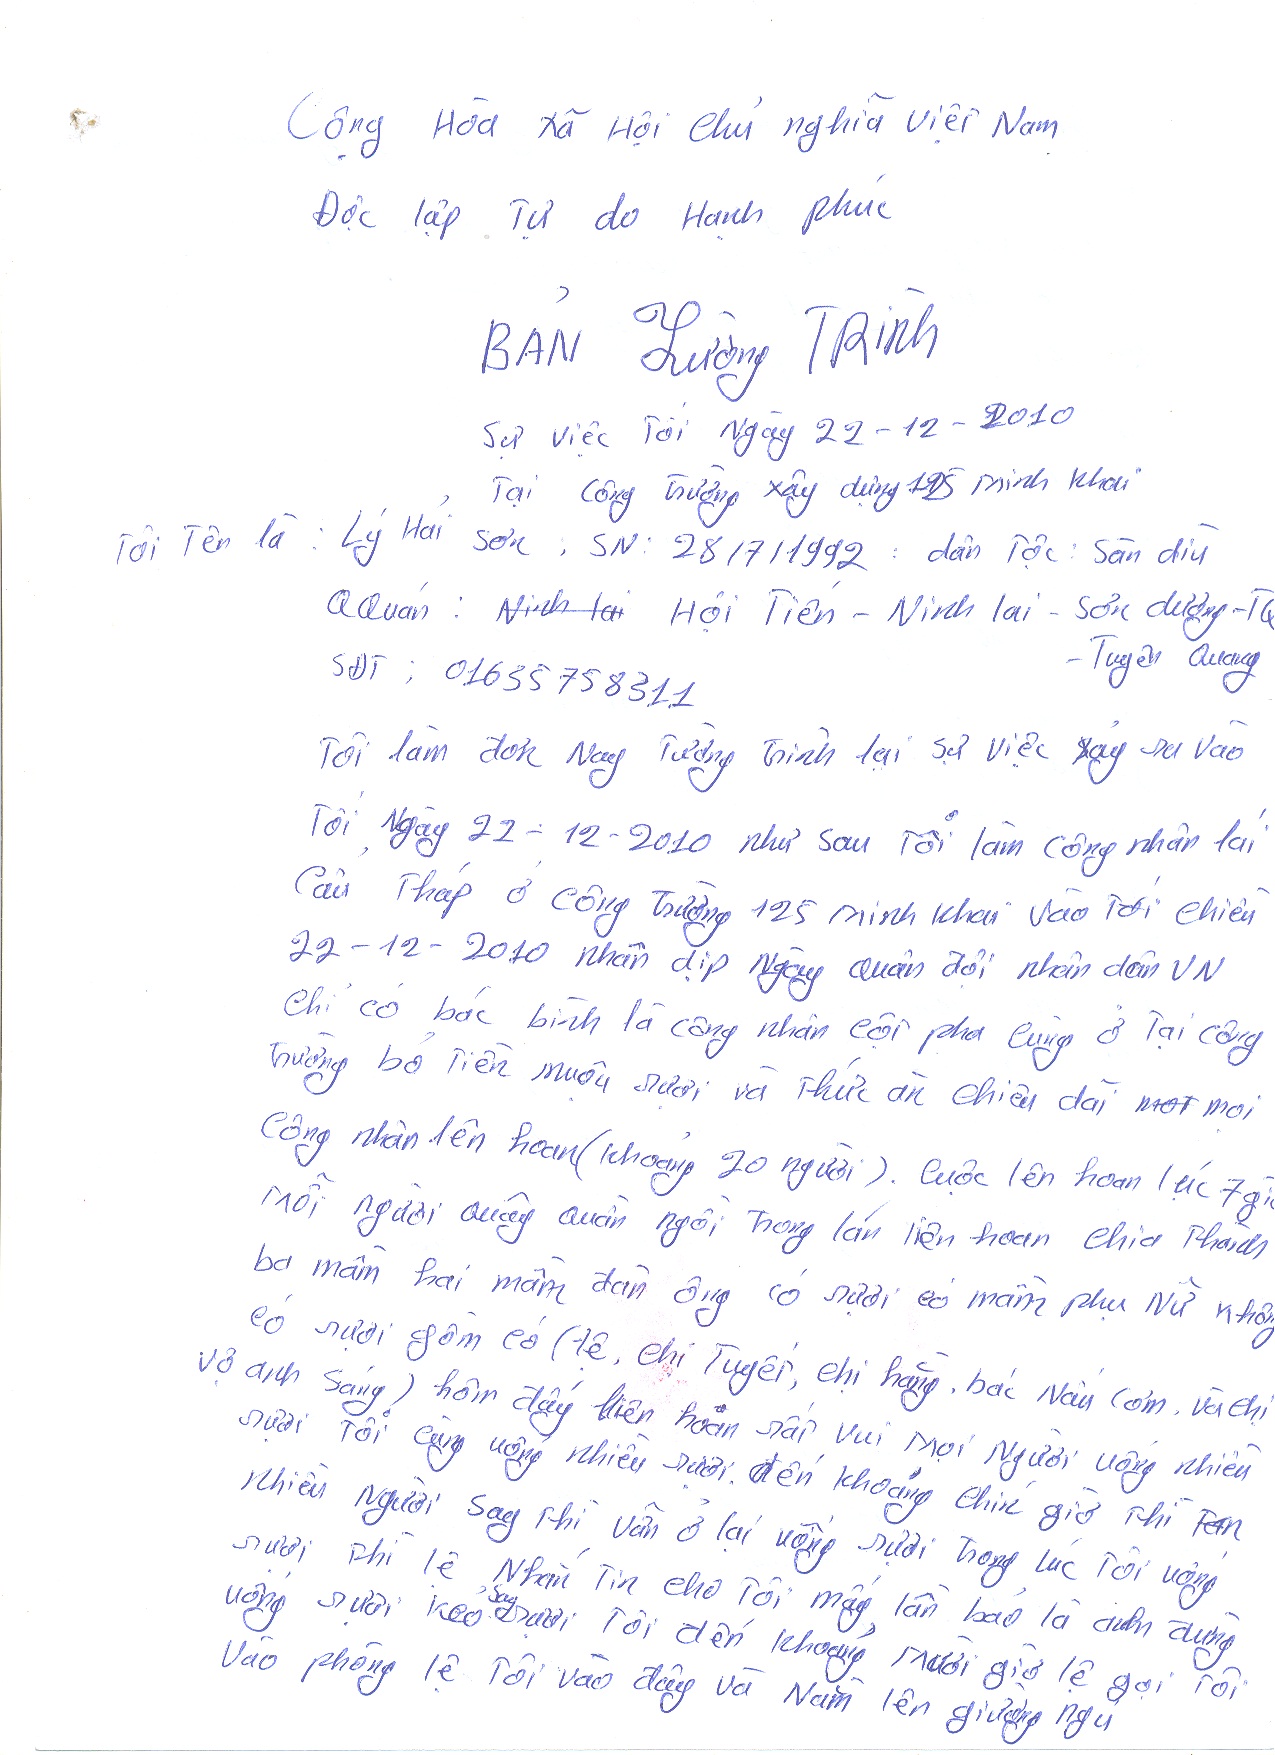 Cộng Hòa xã Hội chủ nghĩa Việt Nam
Độc lập Tự do Hạnh phúc
BẢN Tường TRình
Sự việc Tối Ngày 22-12-2010
Tại công trường xây dựng 125 minh khai
Tôi Tên là : Lý Hải Sơn , SN: 28/7/1992 : dân Tộc: Sán dìu
QQuán : Ninh lai Hội Tiến - Ninh lai - Sơn dương - TQ
- Tuyên Quang
SĐT : 01635758311
Tôi làm đơn Nay Tường trình lại sự việc xảy ra vào
Tối Ngày 22-12-2010 như sau Tôi làm công nhân lái
Cẩu Tháp ở công trường 125 minh khai vào Tối chiều
22-12-2010 nhân dịp Ngày quân đội nhân dân VN
chỉ có bác bình là công nhân cột pha cùng ở Tại công
trường bỏ Tiền muộu rượi và Thức ăn chiêu dãi mọi
công nhân lên hoan (khoảng 20 người). Cuộc lên hoan lúc 7 giờ
mỗi người quây quần ngồi trong lán liên hoan chia Thành
ba mâm hai mâm đàn ông có rượi có mâm phụ Nữ không
có rượi gồm có (lệ, chị Tuyết, chị hằng, bác Nấu cơm, và chị
vợ anh sáng) hôm đấy liên hoan rất vui mọi Người uống nhiều
rượi Tôi cũng uống nhiều rượi. đến khoảng chín giờ Thì
nhiều Người say Thì vẫn ở lại uống rượi trong lúc Tôi uống
rượi Thì lệ Nhắn Tin cho Tôi mấy lần bảo là anh đừng
uống rượi kẻo say rượi Tôi đến khoảng mười giờ lệ gọi Tôi
vào phòng lệ Tôi vào đấy và Nằm lên giường ngủ